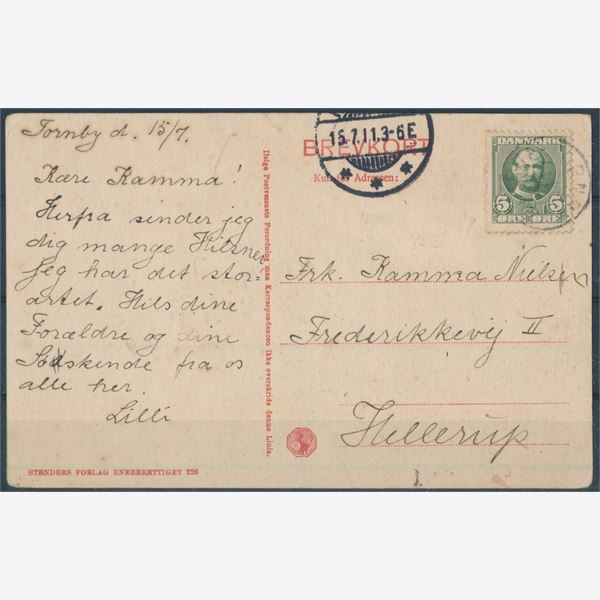 Tornby d. 15/7.
Kære Kamma!
Herfra sender jeg
dig mange Hilsner
Jeg har det stor-
artet. Hils dine
Forældre og dine
Sødskende fra os
alle her.
Lilli
STENDERS FORLAG ENEBERETTIGET 226
Ifølge Postvæsenets Forordning maa Korrespondancen ikke overskride denne Linie.
15.7.11.3-6E
BREVKORT
Kun til Adressen:
DANMARK
5 5
ØRE ØRE
Frk. Kamma Nielsen
Frederikkevej II
Hellerup